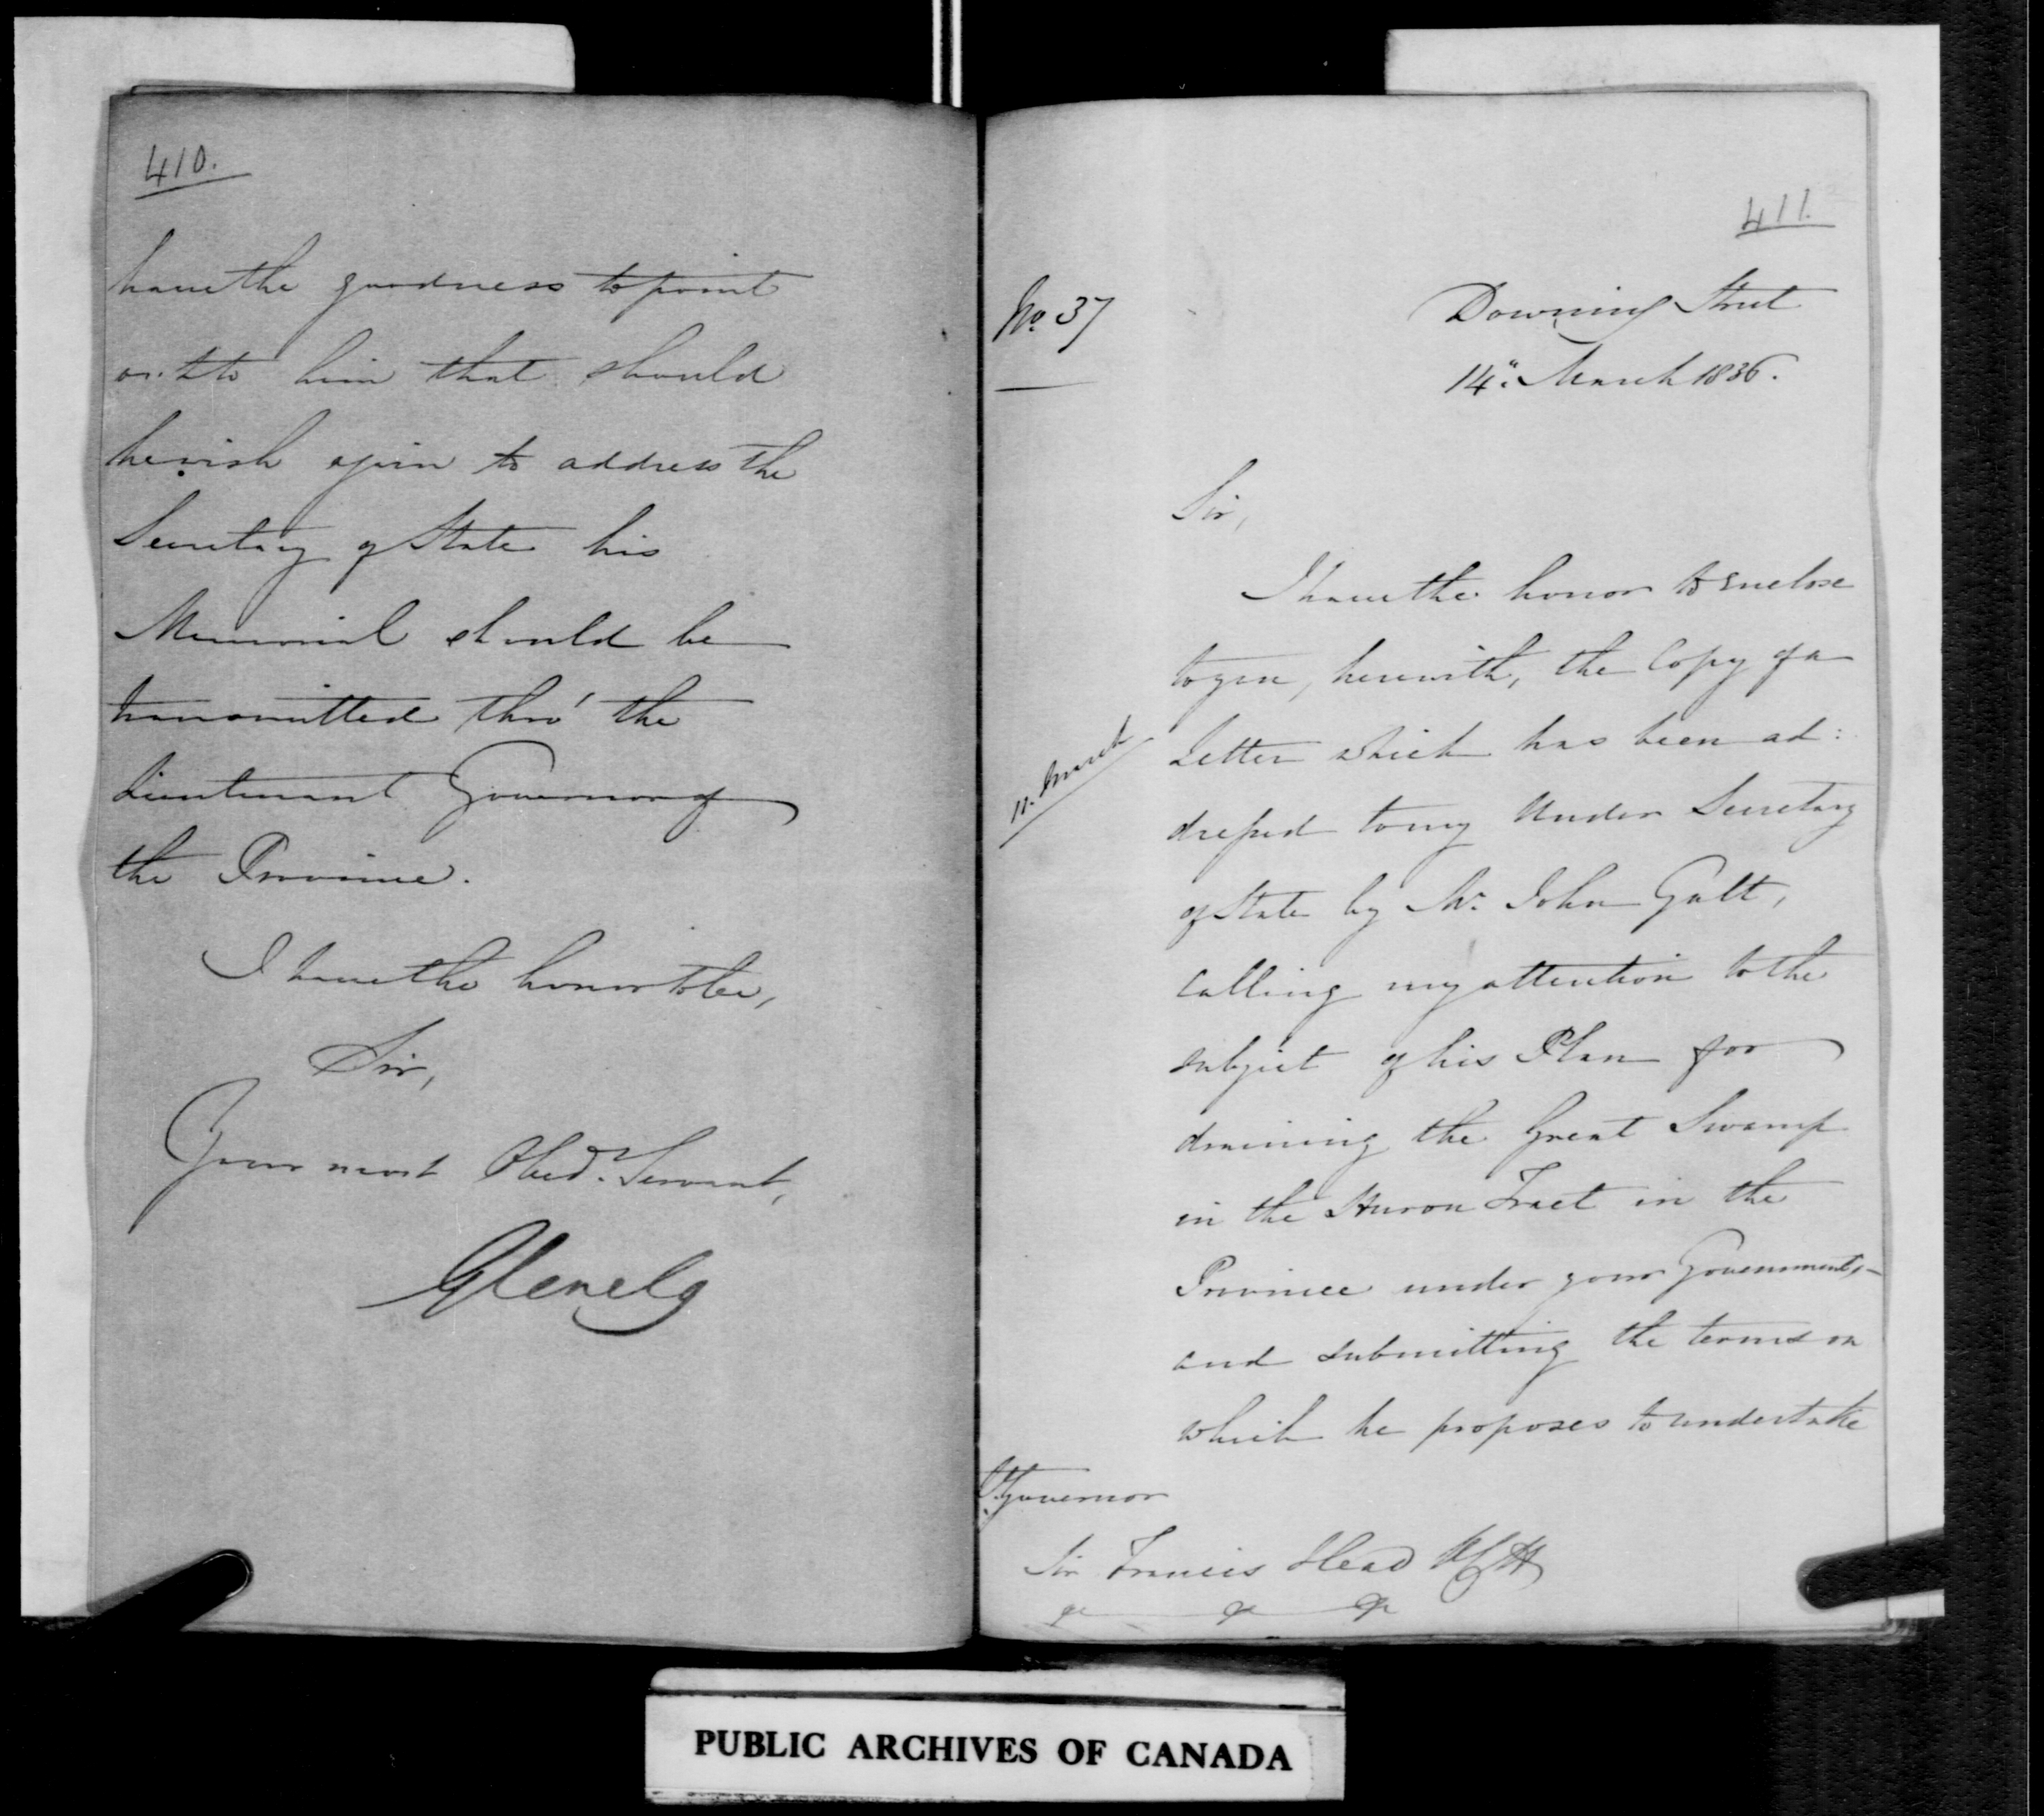 410.
have the goodness to point
out to him that should
he wish again to address the
Secretary of State his
Memorial should be
transmitted thro' the
Lieutenant Governor of
the Province.
I have the honor to be,
Sir,
Your most Obed. Servant,
Glenelg
411.
No 37
Downing Street
14th March 1836.
Sir,
I have the honor to enclose
to you, herewith, the Copy of a
11. March
Letter which has been ad:
dressed to my Under Secretary
of State by Mr. John Galt,
calling my attention to the
subject of his Plan for
draining the Great Swamp
in the Huron Tract in the
Province under your Government,
and submitting the terms on
which he proposes to undertake
Governor
Sir Francis Head KCH
PUBLIC ARCHIVES OF CANADA